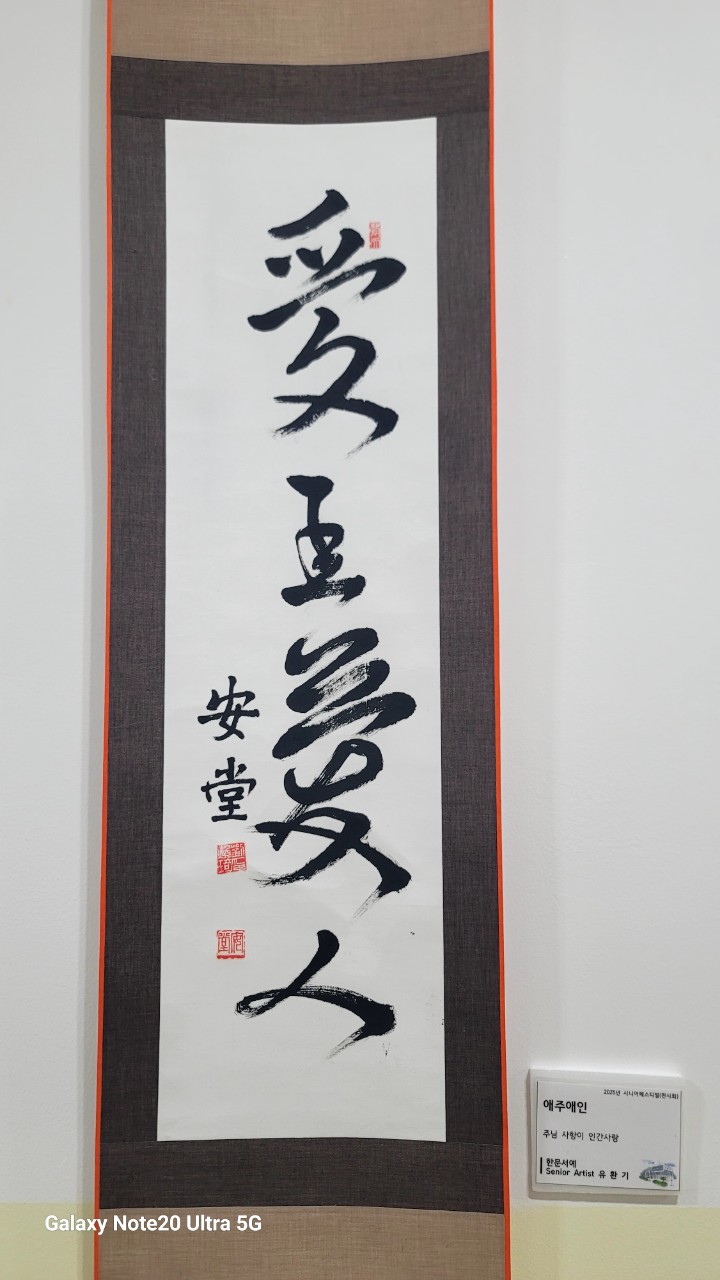 愛主愛人
安堂
2025년 시니어페스티벌(전시회)
애주애인
주님 사랑이 인간사랑
한문서예
Senior Artist 유 환 기
Galaxy Note20 Ultra 5G